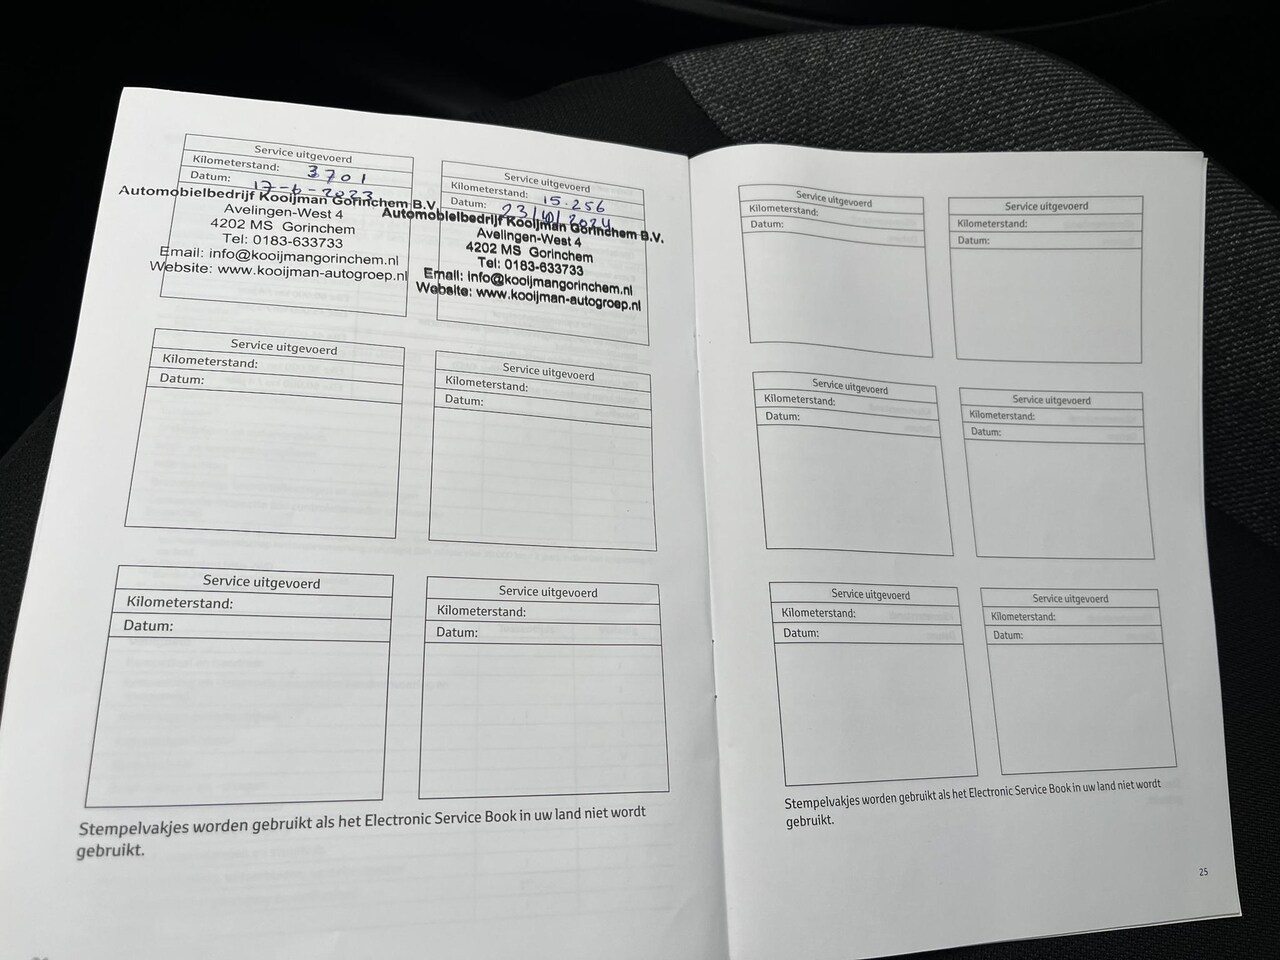 Service uitgevoerd
Kilometerstand: 3701
Datum: 17-6-2023
Automobielbedrijf Kooijman Gorinchem B.V.
Avelingen-West 4
4202 MS Gorinchem
Tel: 0183-633733
Email: info@kooijmangorinchem.nl
Website: www.kooijman-autogroep.nl
Service uitgevoerd
Kilometerstand: 15.256
Datum: 23/10/2024
Automobielbedrijf Kooijman Gorinchem B.V.
Avelingen-West 4
4202 MS Gorinchem
Tel: 0183-633733
Email: info@kooijmangorinchem.nl
Website: www.kooijman-autogroep.nl
Service uitgevoerd
Kilometerstand:
Datum:
Service uitgevoerd
Kilometerstand:
Datum:
Service uitgevoerd
Kilometerstand:
Datum:
Service uitgevoerd
Kilometerstand:
Datum:
Stempelvakjes worden gebruikt als het Electronic Service Book in uw land niet wordt
gebruikt.
Service uitgevoerd
Kilometerstand:
Datum:
Service uitgevoerd
Kilometerstand:
Datum:
Service uitgevoerd
Kilometerstand:
Datum:
Service uitgevoerd
Kilometerstand:
Datum:
Service uitgevoerd
Kilometerstand:
Datum:
Service uitgevoerd
Kilometerstand:
Datum:
Stempelvakjes worden gebruikt als het Electronic Service Book in uw land niet wordt
gebruikt.
25